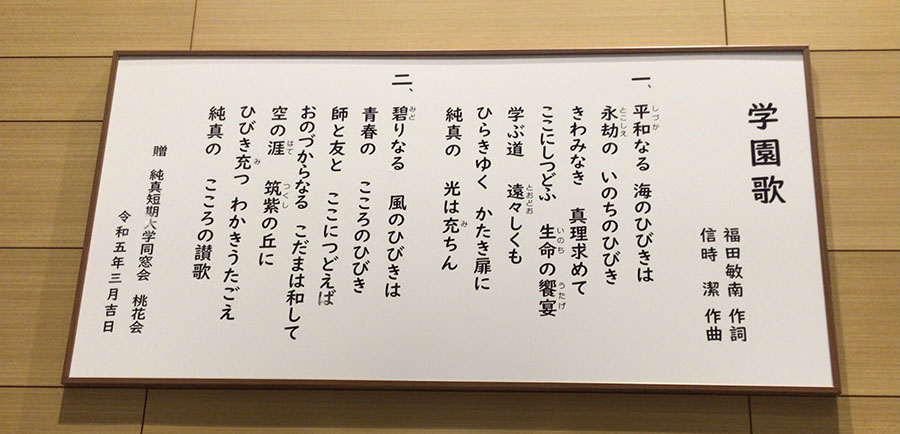 学園歌
福田敏南 作詞
信時 潔 作曲
一、平和なる 海のひびきは
永劫の いのちのひびき
きわみなき 真理求めて
ここにしつどふ 生命の饗宴
学ぶ道 遠々しくも
ひらきゆく かたき扉に
純真の 光は充ちん
二、碧りなる 風のひびきは
青春の こころのひびき
師と友と ここにつどえば
おのづからなる こだまは和して
空の涯 筑紫の丘に
ひびき充つ わかきうたごえ
純真の こころの讃歌
贈 純真短期大学同窓会 桃花会
令和五年三月吉日